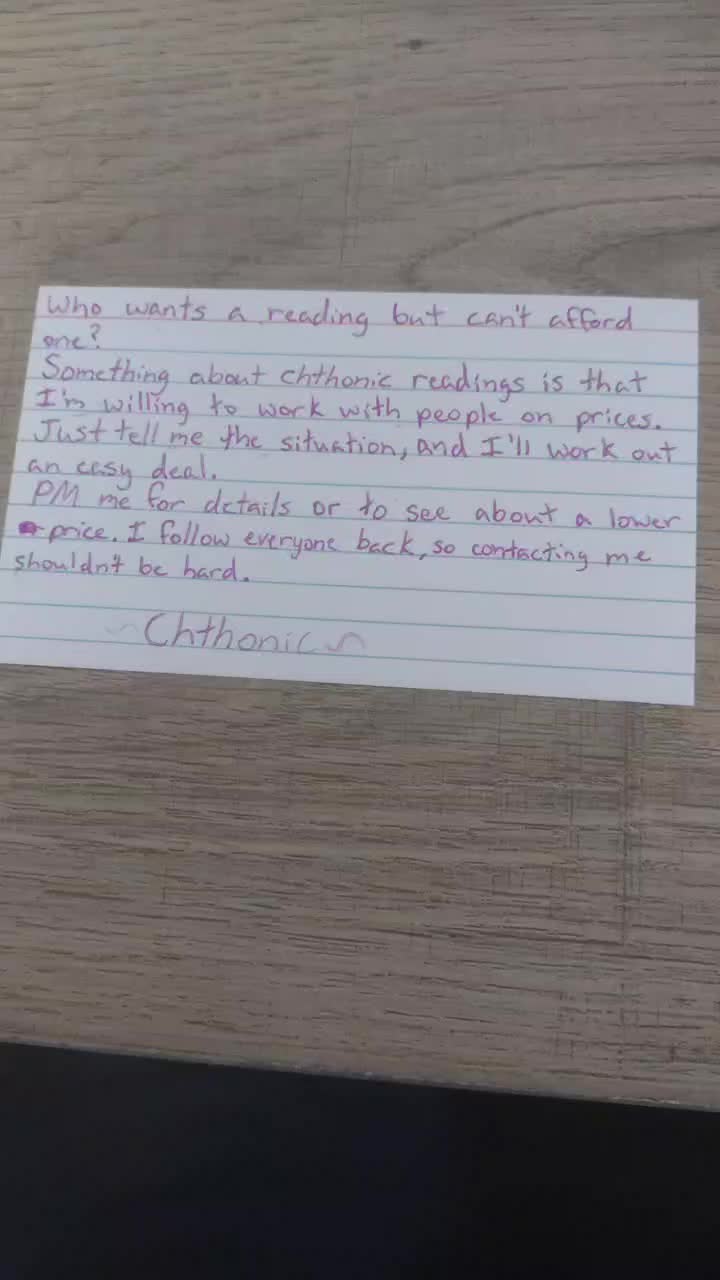 Who wants a reading but can't afford
one?
Something about chthonic readings is that
I'm willing to work with people on prices.
Just tell me the situation, and I'll work out
an easy deal.
PM me for details or to see about a lower
price. I follow everyone back, so contacting me
shouldn't be hard.
~Chthonic~